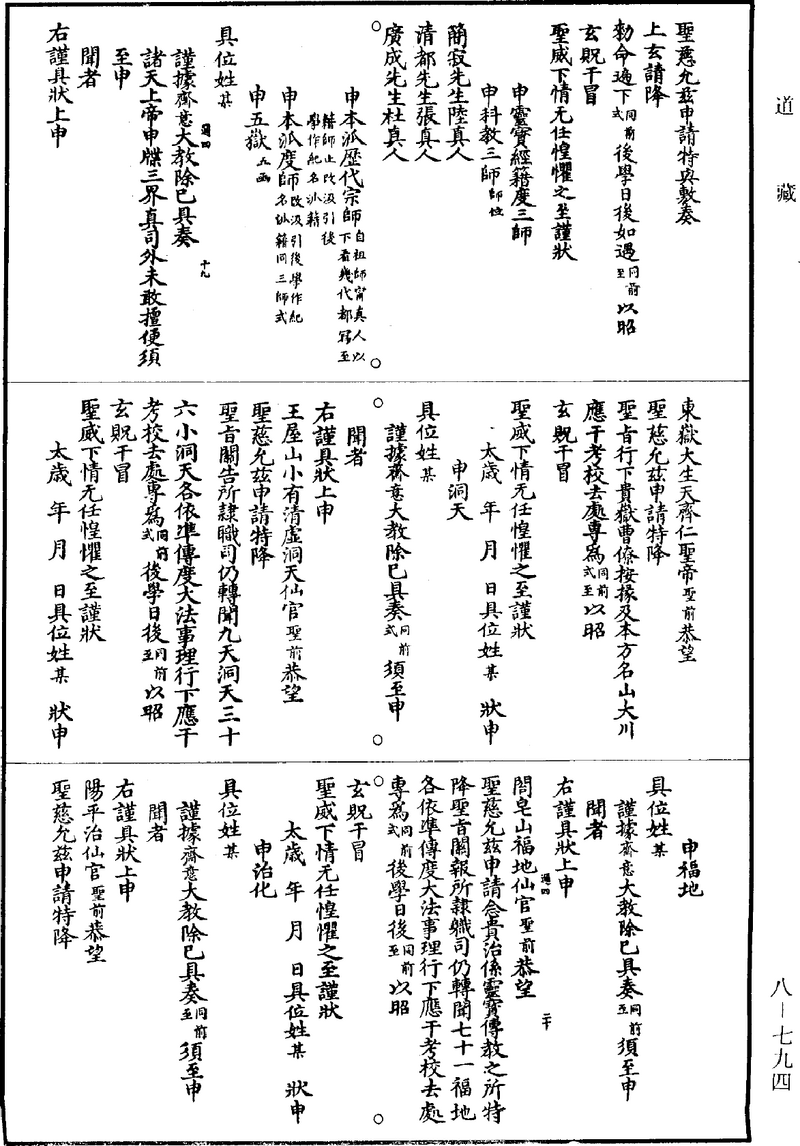 道藏
聖慈允茲申請特與敷奏
上玄請降
勑命遍下式同前後學日後如遇至同前以昭
玄貺干冒
聖威下情无任惶懼之至謹狀
申靈寶經籍度三師
申科教三師師位
簡寂先生陸真人
清都先生張真人
廣成先生杜真人
申本派歷代宗師自祖師甯真人以下看幾代都寫至
籍師止改汲引後學作紀名沠籍
申本派度師改汲引後學作紀名沠籍同三師式
申五嶽五函
具位姓某
謹據齋意大教除已具奏
諸天上帝申牒三界真司外未敢擅便須
至申
聞者
右謹具狀上申
東嶽大生天齊仁聖帝聖前恭望
聖慈允茲申請特降
聖旨行下貴嶽曹僚按掾及本方名山大川
應干考校去處專為式至同前以昭
玄貺干冒
聖威下情无任惶懼之至謹狀
太歲年月日具位姓某狀申
申洞天
具位姓某
謹據齋意大教除已具奏式同前須至申
聞者
右謹具狀上申
王屋山小有清虛洞天仙官聖前恭望
聖慈允茲申請特降
聖旨關告所隸職司仍轉聞九天洞天三十
六小洞天各依準傳度大法事理行下應干
考校去處專為式同前後學日後至同前以昭
玄貺干冒
聖威下情无任惶懼之至謹狀
太歲年月日具位姓某狀申
申福地
具位姓某
謹據齋意大教除已具奏至同前須至申
聞者
右謹具狀上申
閤皂山福地仙官聖前恭望
聖慈允茲申請念貴治係靈寶傳教之所特
降聖旨關報所隸職司仍轉聞七十一福地
各依準傳度大法事理行下應干考校去處
專為式同前後學日後至同前以昭
玄貺干冒
聖威下情无任惶懼之至謹狀
太歲年月日具位姓某狀申
申治化
具位姓某
謹據齋意大教除已具奏至同前須至申
聞者
右謹具狀上申
陽平治仙官聖前恭望
聖慈允茲申請特降
八—七九四